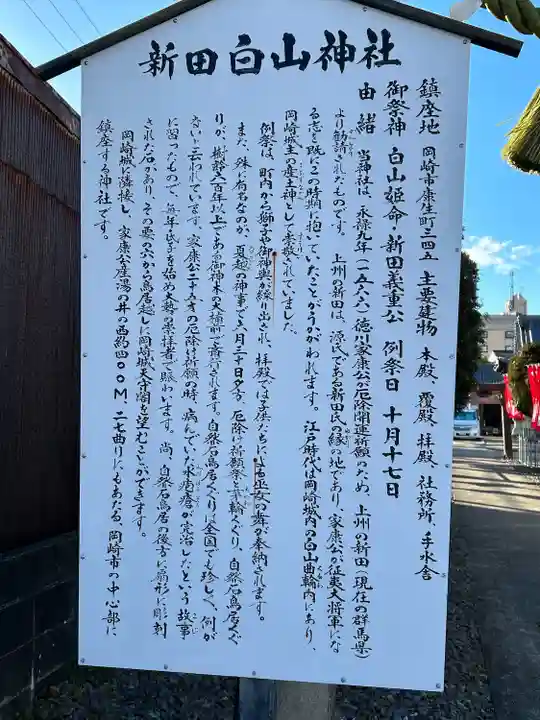 新田白山神社
鎮座地 岡崎市康生町三四五 主要建物 本殿、覆殿、拝殿、社務所、手水舎
御祭神 白山姫命・新田義重公 例祭日 十月十七日
由緒 当神社は、永禄九年(一五六六)徳川家康公が厄除開運祈願のため、上州の新田(現在の群馬県)
より勧請されたものです。上州の新田は、源氏である新田氏の縁の地であり、家康公が征夷大将軍にな
る志を既にこの時期に抱いていたことがうかがわれます。江戸時代は岡崎城内の白山曲輪内にあり、
岡崎城主の産土神として崇敬されていました。
例祭は、町内から獅子や御神輿が繰り出され、拝殿では子供たちによる巫女の舞が奉納されます。
また、殊に有名なのが、夏越の神事で六月三十日夕方、厄除け祈願祭と茅輪くぐり、自然石鳥居くぐ
りが、樹齢八百年以上である御神木の大楠前で斎行されます。自然石鳥居くぐりは全国でも珍しく、例が
ないと云れています。家康公二十五才の厄除け祈願の時、病んでいた水疱瘡が完治したという故事
に習ったもので、毎年氏子を始め大勢の崇拝者で賑います。尚、自然石鳥居の後方に扇形に彫刻
された石があり、その要の穴から鳥居越しに岡崎城天守閣を望むことができます。
岡崎城に隣接し、家康公産湯の井の西約四〇〇M、二七曲りにもあたる、岡崎市の中心部に
鎮座する神社です。